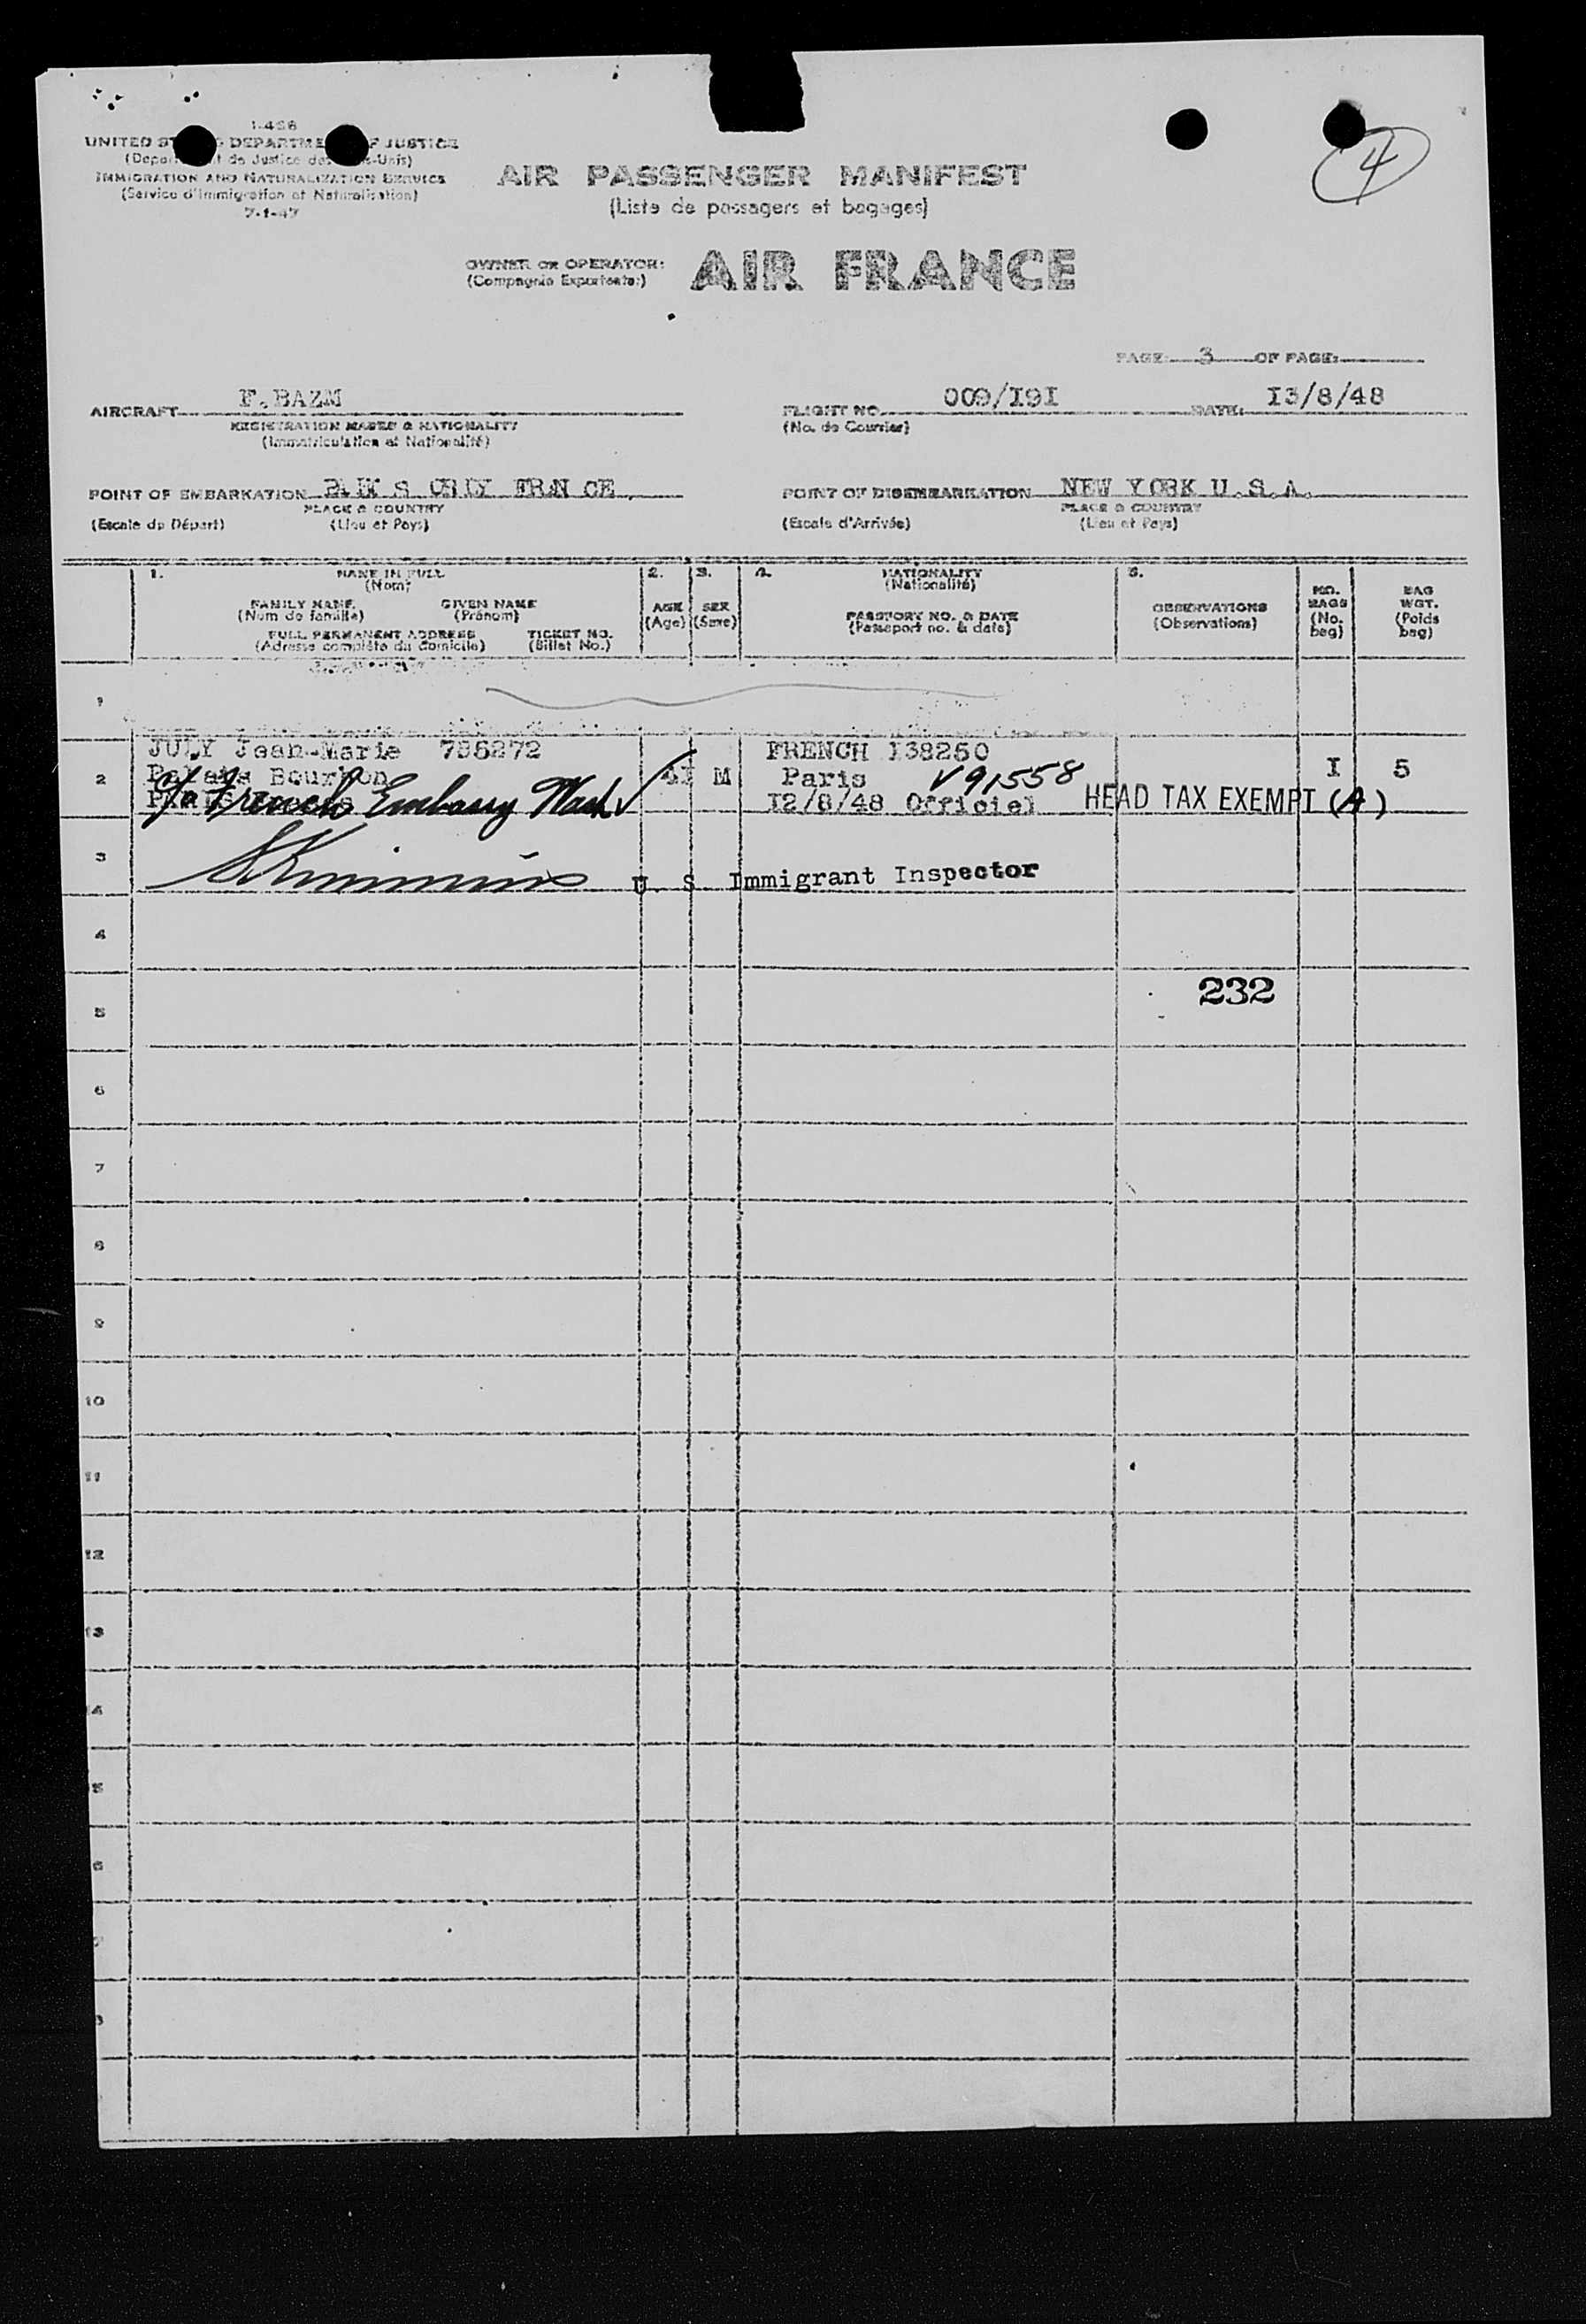 I-466
UNITED ST DEPARTME F JUSTICE
(Depar t de Justice des s-Unis)
IMMIGRATION AND NATURALIZATION SERVICE
(Service d'Immigration et Naturalisation)
7-1-47
4
AIR PASSENGER MANIFEST
(Liste de passagers et bagages)
OWNER OR OPERATOR: AIR FRANCE
(Compagnie Exportante:)
PAGE: 3 OF PAGE:
AIRCRAFT F.BAZM FLIGHT NO. 009/I9I DATE: I3/8/48
REGISTRATION MARKS & NATIONALITY (No. de Courrier)
(Immatriculation et Nationalité)
POINT OF EMBARKATION PARIS ORLY FRANCE. POINT OF DISEMBARKATION NEW YORK U.S.A.
PLACE & COUNTRY PLACE & COUNTRY
(Escale de Départ) (Lieu et Pays) (Escale d'Arrivée) (Lieu et Pays)
1. NAME IN FULL 2. 3. 4. NATIONALITY 5.
(Nom) (Nationalité)
FAMILY NAME GIVEN NAME AGE SEX PASSPORT NO. & DATE OBSERVATIONS NO. BAGS BAG WGT.
(Nom de famille) (Prénom) (Age) (Sexe) (Passeport no. & date) (Observations) (No. bag) (Poids bag)
FULL PERMANENT ADDRESS TICKET NO.
(Adresse complète du domicile) (Billet No.)
1
JULY Jean-Marie 736272 FRENCH I38250
2 Palais Bourbon 4I M Paris V91558 I 5
c/o French Embassy Wash I2/8/48 Officiel HEAD TAX EXEMPT (A)
3 U S Immigrant Inspector
4
232
5
6
7
8
9
10
11
12
13
4
5
6
7